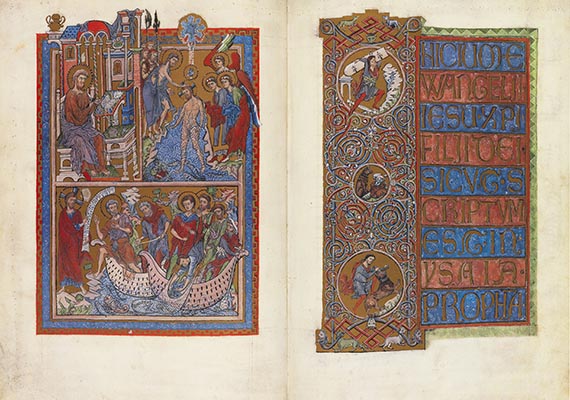 NICIUM E
WANGELII
IESU XPI
FILII DEI
SICUT S
CRIPTUM
EST IN
YSAIA
PROPHA